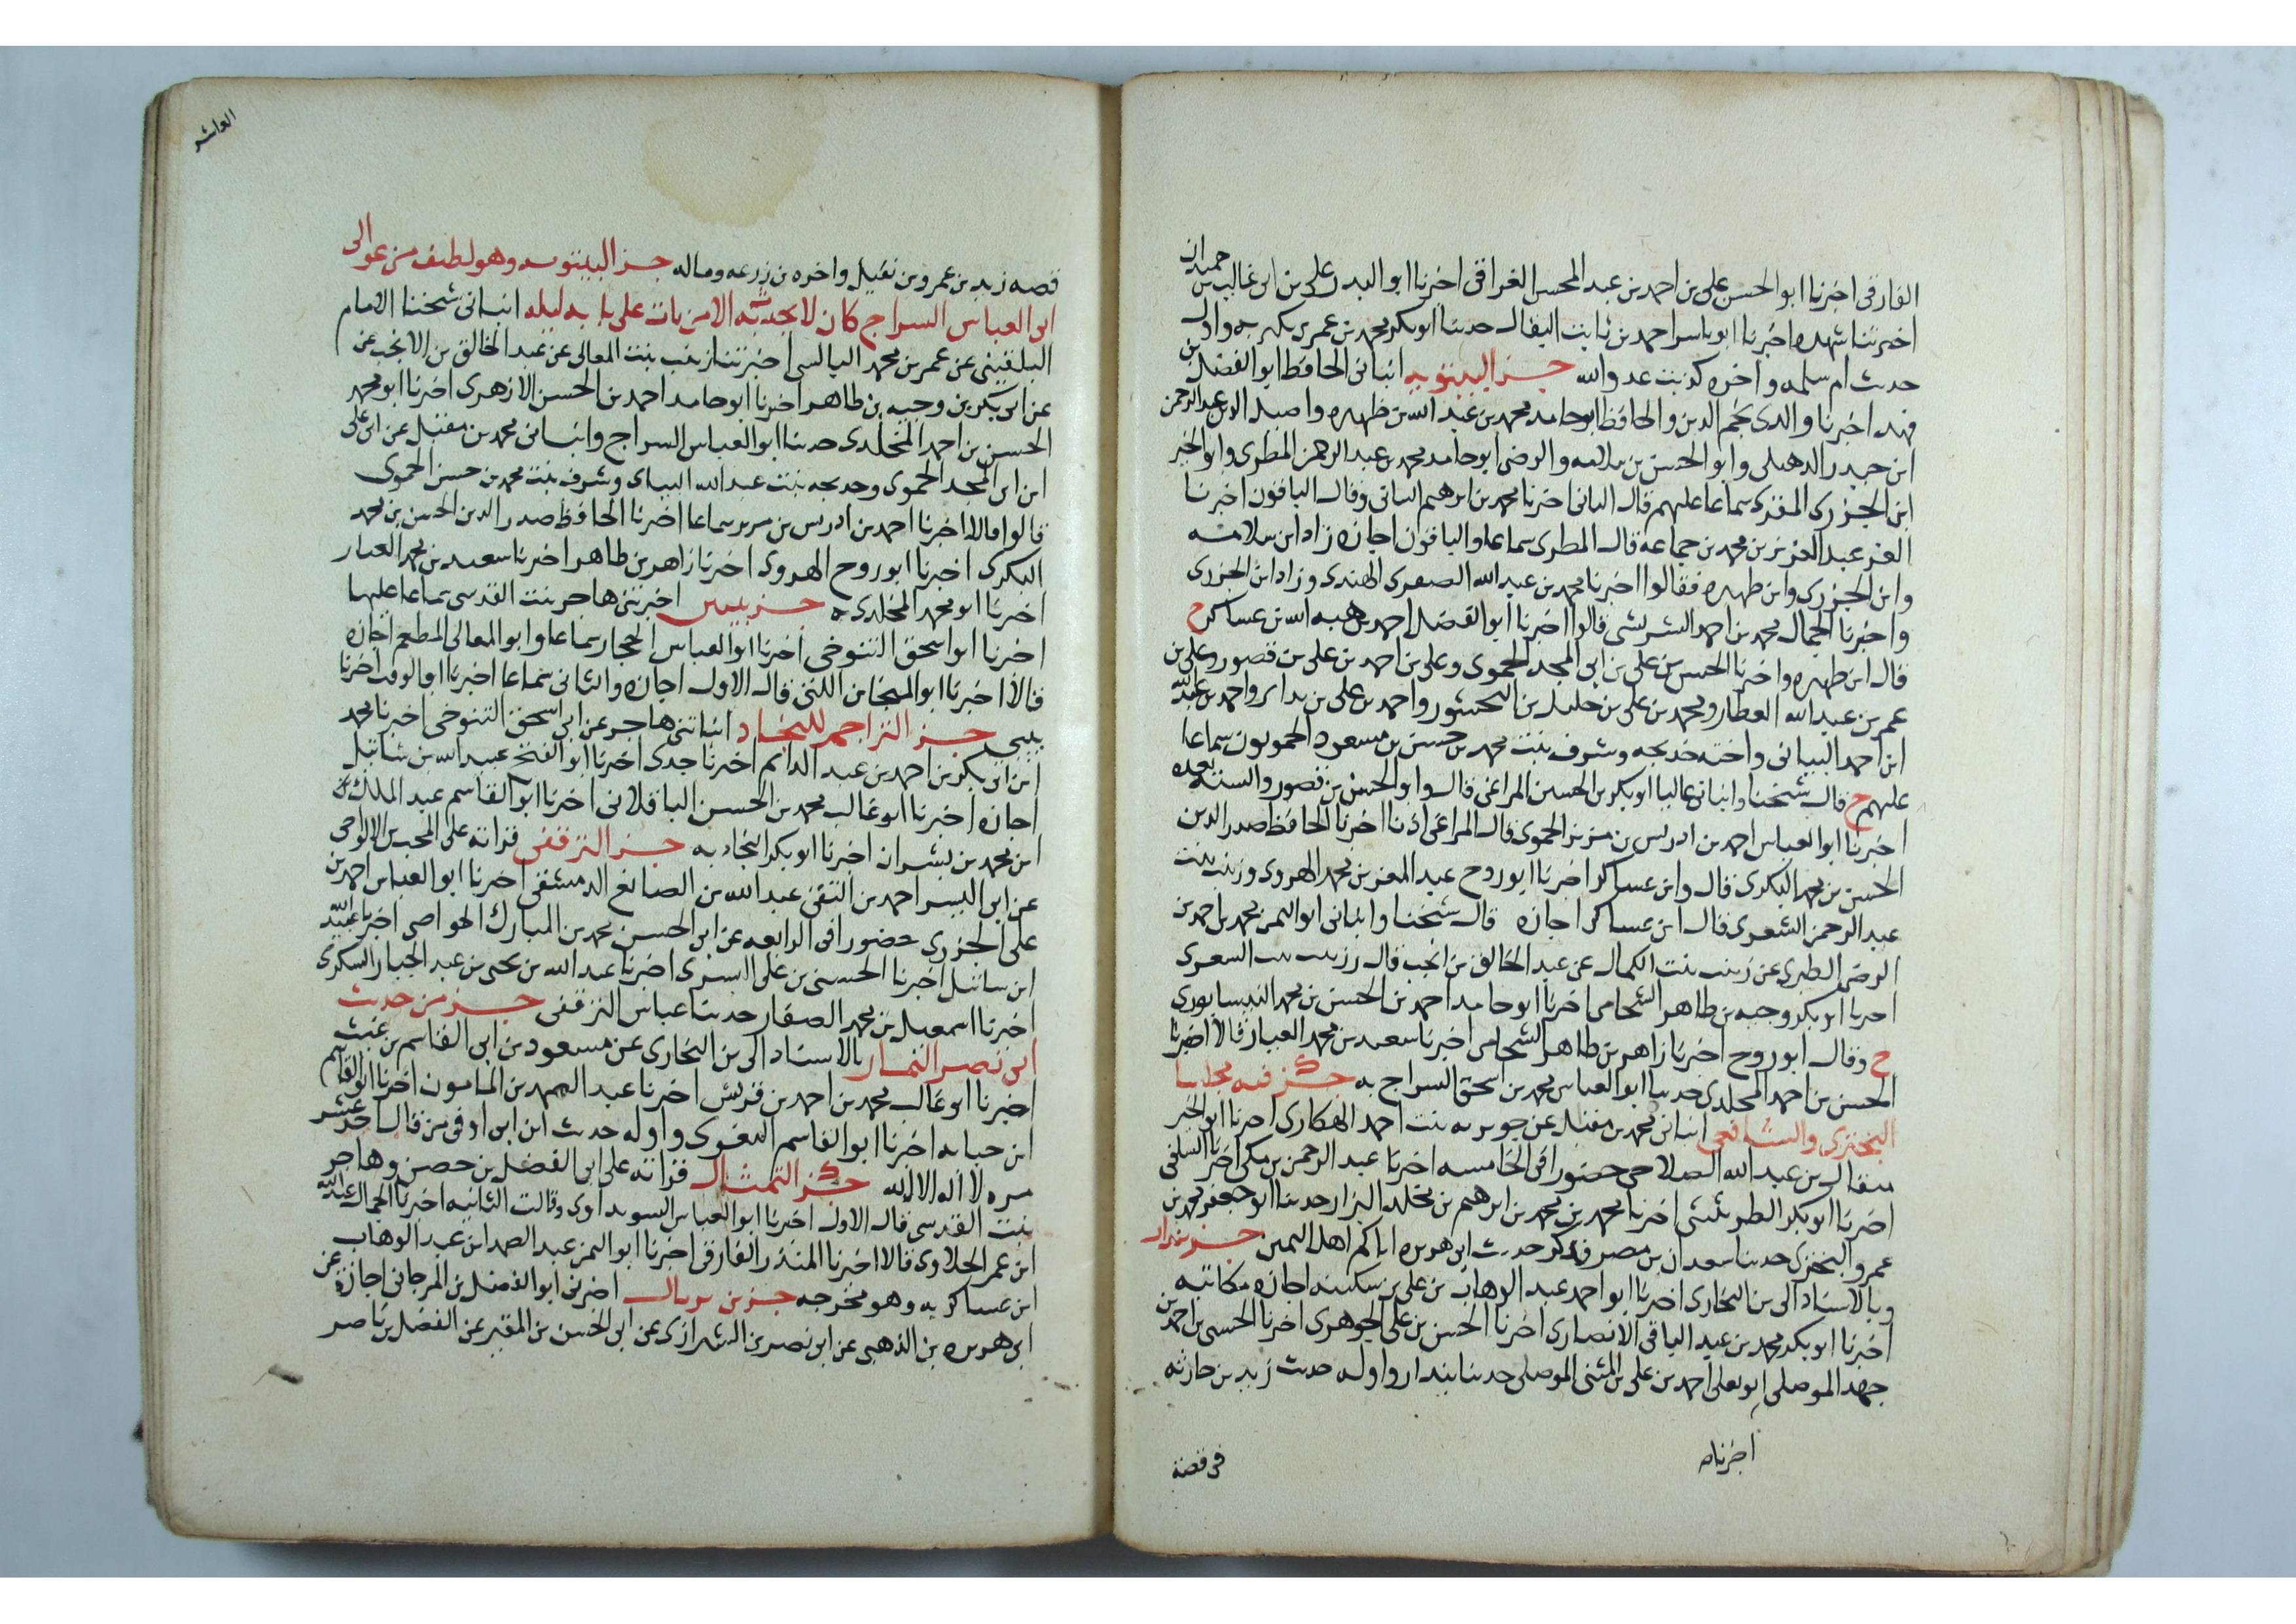 الفارقى اخبرنا ابو الحسن على بن احمد بن عبد المحسن الغرافى اخبرنا ابو البدر على بن ابى غالب بن حميدان
اخبرتنا شهده اخبرنا ابو ياسر احمد بن ثابت البقال حدثنا ابو بكر محمد بن عمر بن بكير به واول
حديث ام سلمه واخره كذبت عدو الله جزء البيتوته انبانى الحافظ ابو الفضل بن
فهد اخبرنا والدى نجم الدين والحافظ ابو حامد محمد بن عبد الله بن ظهيره واصيل الدين عبد الرحمن
ابن حيدر الدهلى وابو الحسن بن سلامه والرضى ابو حامد محمد بن عبد الرحمن المطرى وابو الخير
ابن الجزرى المقرى سماعا عليهم قال الثانى اخبرنا محمد بن ابرهيم البيانى وقال الباقون اخبرنا
العز عبد العزيز بن محمد بن جماعة قال المطرى سماعا والباقون اجازه زاد ابن سلامه
وابن الجزرى وابن ظهيره فقالوا اخبرنا محمد بن عبد الله الصفوى الهندى وزاد ابن الجزرى
واخبرنا الجمال محمد بن احمد الشريشى قالوا اخبرنا ابو الفضل احمد بن هبه الله بن عساكر ح
قال ابن ظهيره واخبرنا الحسن بن على بن ابى المجد الحموى وعلى بن احمد بن على بن قصور وعلى بن
عمر بن عبد الله العطار ومحمد بن على بن خليل بن البحشور واحمد بن على بن بدا بر واحمد بن عبد الله
ابن احمد البيبانى واخته خديجه وشرف بنت محمد بن حسن بن مسعود الحمويون سماعا
عليهم ح قال شيخنا وانبانى عاليا ابو بكر بن الحسين المراغى قال وابو الحسن بن قصور والستة بعده
اخبرنا ابو العباس احمد بن ادريس بن مزيز الحموى قال المراغى اذنا اخبرنا الحافظ صدر الدين
الحسن بن محمد البكرى قال وابن عساكر اخبرنا ابو روح عبد المعز بن محمد الهروى وزينب بنت
عبد الرحمن الشعرى قال ابن عساكر اجازه قال شيخنا وانبانى ابو اليمن محمد بن احمد بن
الرضى الطبرى عن زينب بنت الكمال عن عبد الخالق بن انجب قال وزينب بنت الشعرى
اخبرنا ابو بكر وجيه بن طاهر الشحامى اخبرنا ابو حامد احمد بن الحسن بن محمد النيسابورى
ح وقال ابو روح اخبرنا زاهر بن طاهر الشحامى اخبرنا سعيد بن محمد العيار قالا اخبرنا
الحسن بن احمد المخلدى حدثنا ابو العباس محمد بن اسحق السراج به جزء فيه مجلسا
البخترى والشافعى انبانى محمد بن مقبل عن جويريه بنت احمد الهكارى اخبرنا ابو الخير
مثقال بن عبد الله الصلاحى حضورا فى الخامسه اخبرنا عبد الرحمن بن مكى اخبرنا السلفى
اخبرنا ابو بكر الطريثيثى اخبرنا محمد بن محمد بن ابرهيم بن مخلد البزار حدثنا ابو جعفر محمد بن
عمرو البخترى حدثنا سعدان بن نصر فذكر حديث ابى هريره اتاكم اهل اليمن جزء بندار
وبالاسناد الى بن البخارى اخبرنا ابو احمد عبد الوهاب بن على بن سكينه اجازه مكاتبه
اخبرنا ابو بكر محمد بن عبد الباقى الانصارى اخبرنا الحسن بن على الجوهرى اخبرنا الحسين بن احمد بن
جهد الموصلى ابو يعلى احمد بن على بن المثنى الموصلى حدثنا بندار واوله حديث زيد بن حارثه
اخبرناه
فى قصة
العاشر
قصه زيد بن عمرو بن نفيل واخره بن زرعه وماله جزء البيتوته وهو لطيف من عوالى
ابى العباس السراج كان لا يحدث به الا من بات على بابه ليله انبانى شيخنا الامام
البلقينى عن عمر بن محمد البالسى اخبرتنا زينب بنت المعالى عن عبد الخالق بن الانجب عن
عن ابى بكر بن وجيه بن طاهر اخبرنا ابو حامد احمد بن الحسن الازهرى اخبرنا ابو محمد
الحسن بن احمد المخلدى حدثنا ابو العباس السراج وانبانى محمد بن مقبل عن ابى على
ابن ابى المجد الحموى وخديجه بنت عبد الله البيبانى وشرف بنت محمد بن حسن الحموى
قالوا اخبرنا احمد بن ادريس بن مزيز سماعا اخبرنا الحافظ صدر الدين الحسن بن محمد
البكرى اخبرنا ابو روح الهروى اخبرنا زاهر بن طاهر اخبرنا سعيد بن محمد العيار
اخبرنا ابو محمد المخلدى به جزء بيبى اخبرتنى هاجر بنت القدسى سماعا عليها
اخبرنا ابو اسحق التنوخى اخبرنا ابو العباس الحجار سماعا وابو المعالى المطعم اجازه
قالا اخبرنا ابو المنجا بن اللتى قال الاول اجازه والثانى سماعا اخبرنا ابو الوقت اخبرنا
بيبى جزء التراجم للنجاد انباتنى هاجر عن ابى اسحق التنوخى اخبرنا محمد
ابن ابى بكر بن احمد بن عبد الدائم اخبرنا جدى اخبرنا ابو الفتح عبيد الله بن شاتيل
اجازه اخبرنا ابو غالب محمد بن الحسن الباقلانى اخبرنا ابو القاسم عبد الملك
ابن محمد بن بشران اخبرنا ابو بكر النجاد به جزء الترقفى قراته على المحب بن الالواحى
عن ابى اليسر احمد بن التقى عبد الله بن الصائغ الدمشقى اخبرنا ابو العباس احمد بن
على الجزرى حضورا فى الرابعه عن ابى الحسن محمد بن المبارك الخواص اخبرنا عبيد الله
ابن شاتيل اخبرنا الحسين بن على البسرى اخبرنا عبد الله بن يحيى بن عبد الجبار السكرى
اخبرنا اسمعيل بن محمد الصفار حدثنا عباس الترقفى جزء من حديث
ابى نصر التمار بالاسناد الى بن البخارى عن مسعود بن ابى القاسم بن غيث
اخبرنا ابو غالب محمد بن احمد بن قريش اخبرنا عبد الصمد بن المامون اخبرنا ابو القاسم
ابن حبابه اخبرنا ابو القاسم البغوى واوله حديث ابن ابى اوفى من قال احد عشر
مره لا اله الا الله جزء التمثال قراته على ابى الفضل بن حصن وهاجر
بنت القدسى قال الاول اخبرنا ابو العباس السويداوى وقالت الثانيه اخبرنا الجمال عبد الله
ابن عمر الحلاوى قالا اخبرنا المنذر الفارقى اخبرنا ابو اليمن عبد الصمد ابن عبد الوهاب
ابن عساكر به وهو مخرجه جزء بن بريال اخبرنى ابو الفضل بن المرجانى اجازه عن
ابى هريره بن الذهبى عن ابى نصر بن الشيرازى عن ابى الحسن بن المقير عن الفضل بن ناصر